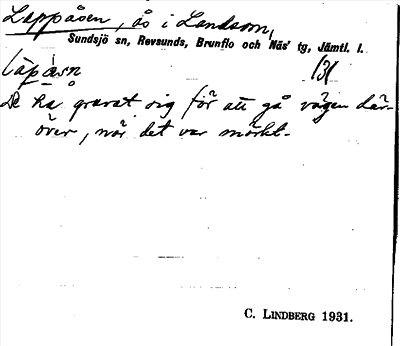 Lappåsen, ås i Landsom,
Sundsjö sn, Revsunds, Brunflo och Näs' tg, Jämtl. l.
låpåsn
131
De ha gravat sig för att gå vägen där-
över, när det var mörkt.
C. LINDBERG 1931.